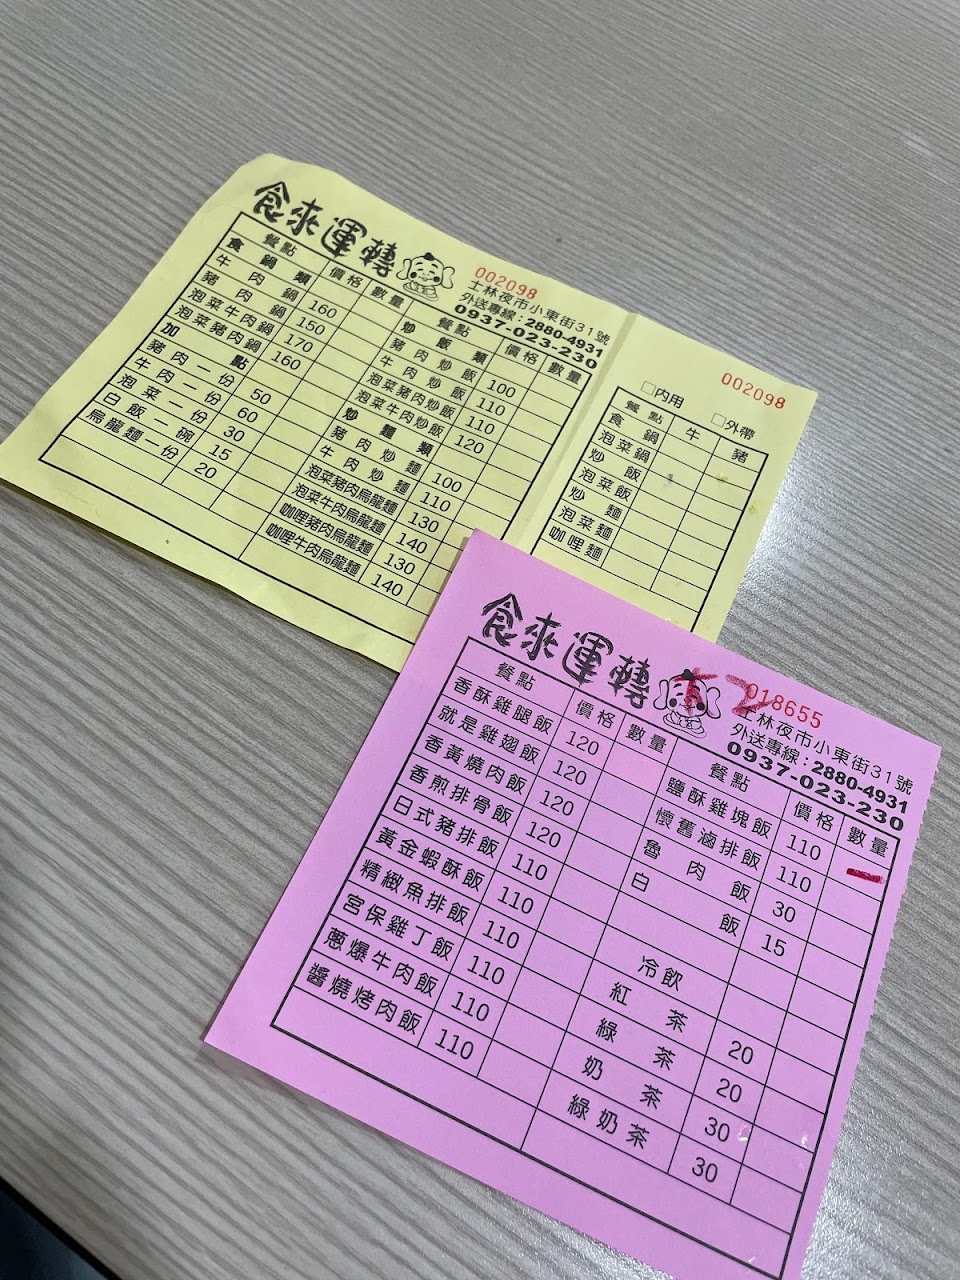 食來運轉
002098
士林夜市小東街31號
外送專線：2880-4931
0937-023-230
餐點 價格 數量
食鍋類
牛肉鍋 160
豬肉鍋 150
泡菜牛肉鍋 170
泡菜豬肉鍋 160
加點
豬肉一份 50
牛肉一份 60
泡菜一份 30
白飯一碗 15
烏龍麵一份 20
餐點 價格 數量
炒飯類
豬肉炒飯 100
牛肉炒飯 110
泡菜豬肉炒飯 110
泡菜牛肉炒飯 120
炒麵類
豬肉炒麵 100
牛肉炒麵 110
泡菜豬肉烏龍麵 130
泡菜牛肉烏龍麵 140
咖哩豬肉烏龍麵 130
咖哩牛肉烏龍麵 140
002098
□內用 □外帶
餐點 牛 豬
食鍋
泡菜鍋
炒飯
泡菜飯
炒麵
泡菜麵
咖哩麵
食來運轉
018655
士林夜市小東街31號
外送專線：2880-4931
0937-023-230
餐點 價格 數量
香酥雞腿飯 120
就是雞翅飯 120
香黃燒肉飯 120
香煎排骨飯 120
日式豬排飯 110
黃金蝦酥飯 110
精緻魚排飯 110
宮保雞丁飯 110
蔥爆牛肉飯 110
醬燒烤肉飯 110
餐點 價格 數量
鹽酥雞塊飯 110 一
懷舊滷排飯 110
魯肉飯 30
白飯 15
冷飲
紅茶 20
綠茶 20
奶茶 30
綠奶茶 30